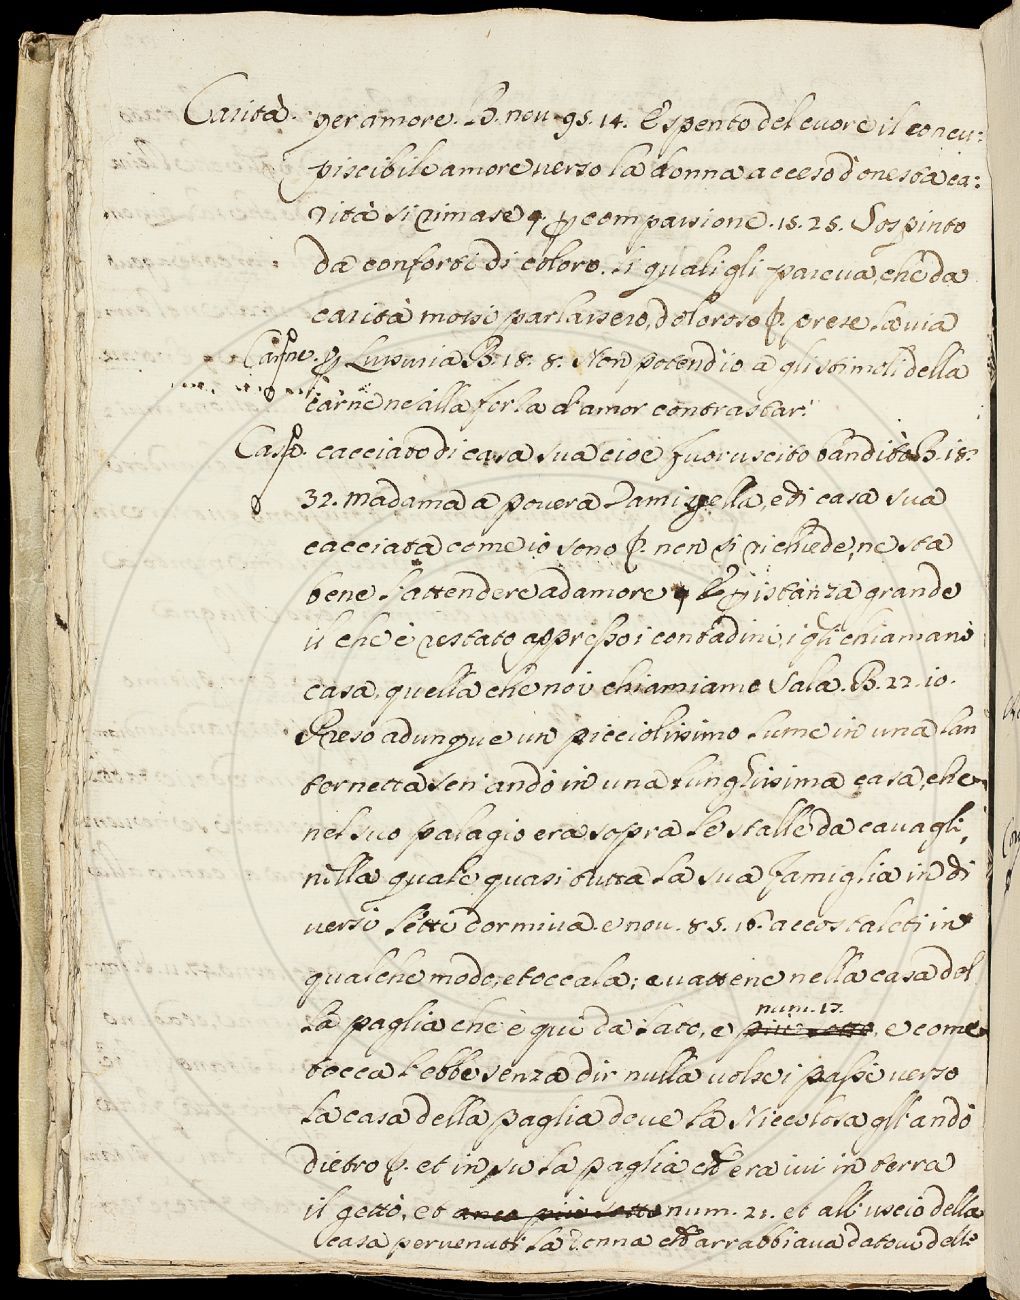 Carità. per amore. B. nou. 95. 14. E spento del cuore il concu:
piscibile amore uerso la donna acceso d'onesta ca:
rità si rimase q. ꝑ compassione. 15. 25. Sospinto
da conforti di coloro. li quali gli pareua, che da
carità mossi parlassero, doloroso p. prese la uia
Carne. ꝑ Lussuria B. 18. 8. Non potend'io a gli stimoli della
carne ne alla forza d'amor contrastar.
Casa. cacciato di casa sua cioè fuoruscito bandito B. 18.
32. madama a pouera Damigella, e di casa sua
cacciata come io sono p. non si richiede, ne sta
bene l'attendere ad amore q E ꝑ istanza grande
il che è restato appresso i contadini, i qli chiamano
casa, quella che noi chiamiamo Sala. B. 22. 10.
Preso adunque un picciolissimo lume in una lan
ternetta sen' andò in una lunghissima casa, che
nel suo palagio era sopra le stalle da cauagli,
nella quale quasi tutta la sua famiglia in di
uersi letti dormiua. e nou. 85. 16. accostaleti in
qualche modo, e toccala; e uattene nella casa del
num. 17.
la paglia che è qui da lato, e più sotto, e come
tocca l'ebbe senza dir nulla uolse i passi uerso
la casa della paglia doue la Niccolosa gli andò
dietro p. et in su la paglia che era iui in terra
il gettò, et anco più sotto num. 21. et all'uscio della
casa peruenuti la Donna che arrabbiaua datoui delle